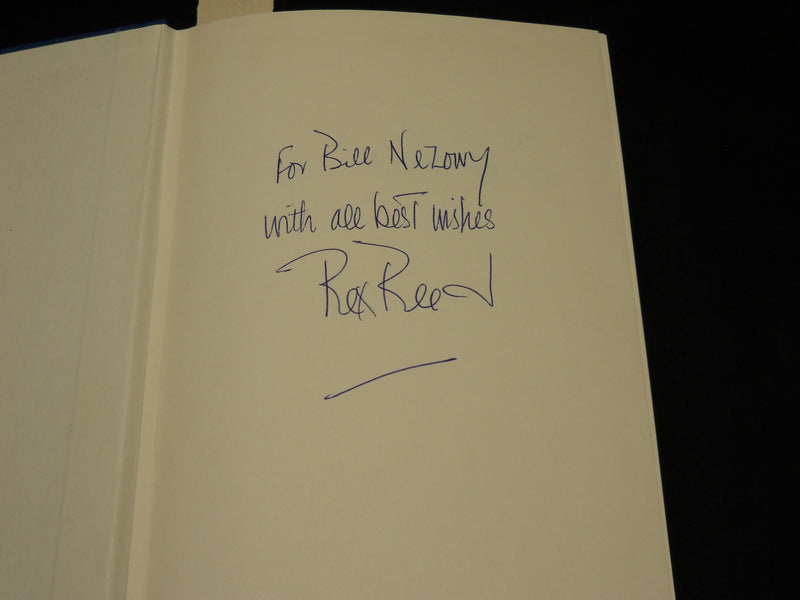 For Bill Nezowy
with all best wishes
Rex Reed